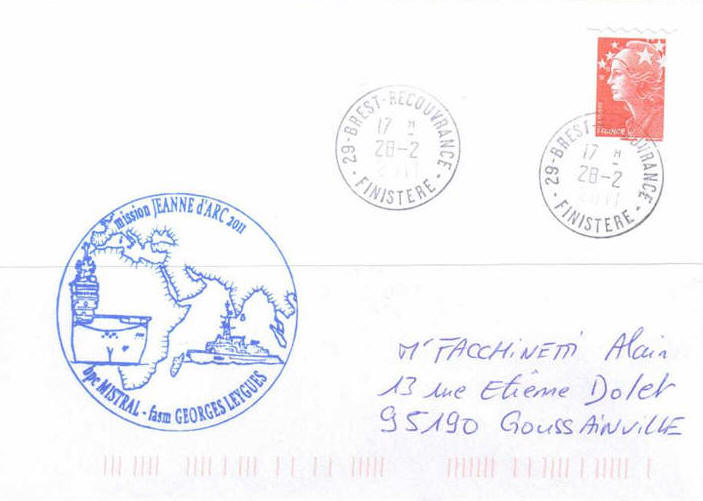 29-BREST-RECOUVRANCE
17 H
28-2
2011
- FINISTERE -
FRANCE
29-BREST-RECOUVRANCE
17 H
28-2
2011
- FINISTERE -
mission JEANNE d'ARC 2011
bpc MISTRAL - fasm GEORGES LEYGUES
Mr FACCHINETTI Alain
13 rue Etienne Dolet
95190 GOUSSAINVILLE